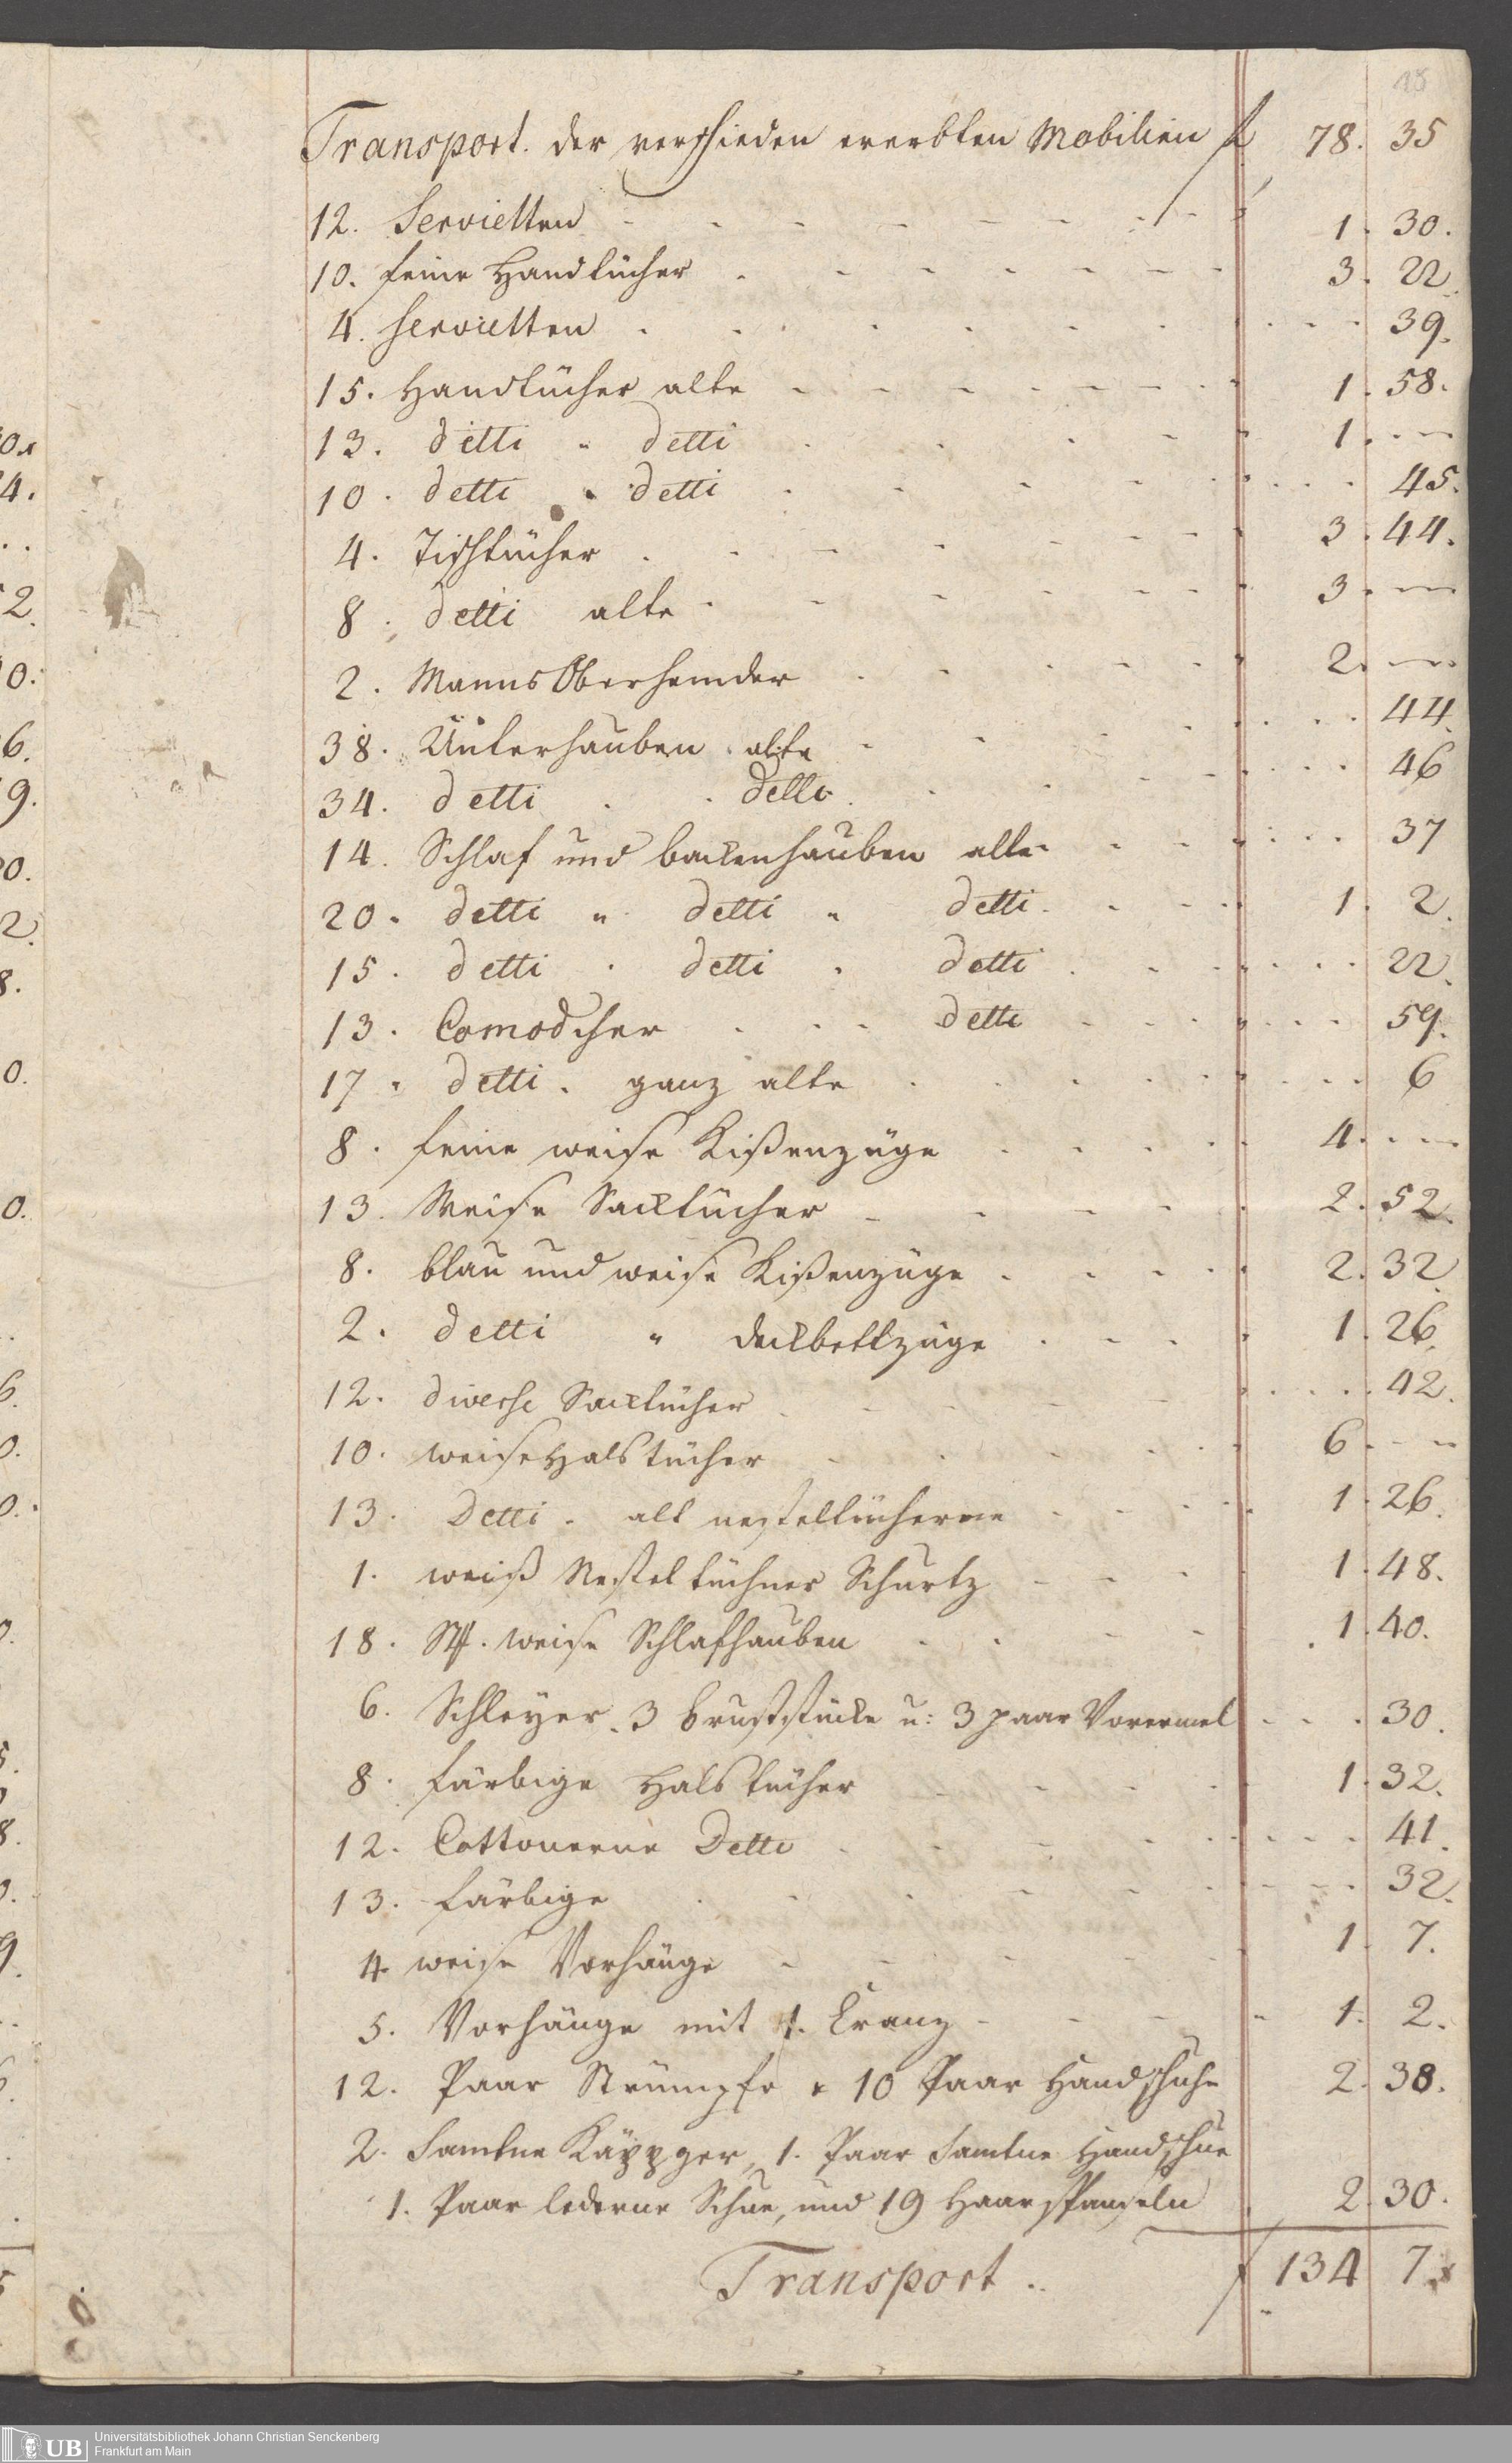 15
Transport. der verschieden ererbten Mobilien f 78. 35
12. Servietten - - - - - - - 1. 30.
10. feine Handtücher - - - - - - 3. 22.
4. Servietten - - - - - - - 39.
15. Handtücher alte - - - - - - 1. 58.
13. detti " detti - - - - 1. --
10. detti " detti - - - - 45.
4. Tischtücher - - - - - - 3. 44.
8. detti alte - - - - - - 3. --
2. Manns Oberhemder - - - - - 2. --
38. Unterhauben alte - - - - 44.
34. detti . . detto - - - - 46
14. Schlaf und backenhauben alte - - - 37
20. detti " detti " detti - - - 1. 2.
15. detti . detti . detti - - - 22.
13. Comodcher - - - detti - - - 59.
17. detti. ganz alte - - - - - 6
8. feine weise Kißenzüge - - - - 4. --
13. Weise Sacktücher - - - - 2. 52.
8. blau und weise Kißenzüge - - - - 2. 32.
2. detti " deckbettzüge - - - 1. 26.
12. diverse Sacktücher - - - - - 42.
10. weise Halstücher - - - - - 6. --
13. Detti. alt nesteltücherne - - - - 1. 26.
1. weiß Nesteltüchner Schurtz - - - 1. 48.
18. St. weise Schlafhauben - - - - 1. 40.
6. Schleyer. 3 bruststücke u: 3 paar Vorermel - - - 30.
8. färbige Halstücher - - - - 1. 32.
12. Cottonerne Detto - - - - - 41.
13. färbige - - - - - - 32.
4 weise Vorhänge - - - - - 1. 7.
5. Vorhänge mit 1. Kranz - - - - 1. 2.
12. Paar Strümpfe & 10 Paar Handschuhe 2. 38.
2. Samtne Käppger, 1. Paar Samtne Handschue
1. Paar lederne Schue, und 19 Haar 2. 30.
Transport .. f 134 7 x
Universitätsbibliothek Johann Christian Senckenberg
Frankfurt am Main
UB